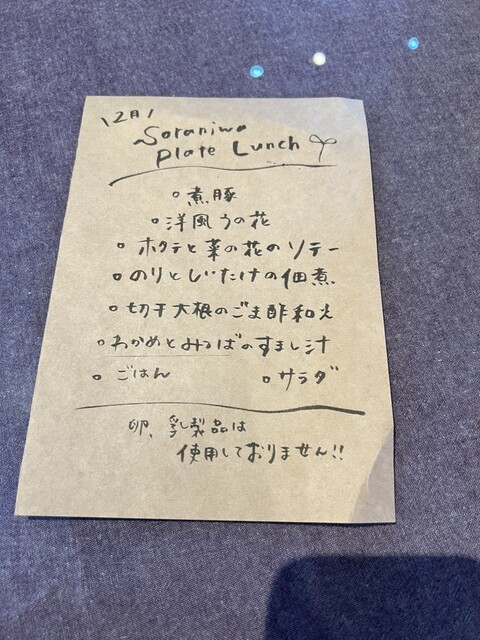 \2月/
Soraniwa
Plate Lunch
○煮豚
○洋風うの花
○ホタテと菜の花のソテー
○のりとしいたけの佃煮
○切干大根のごま酢和え
○わかめとみつばのすまし汁
○ごはん ○サラダ
卵、乳製品は
使用しておりません!!